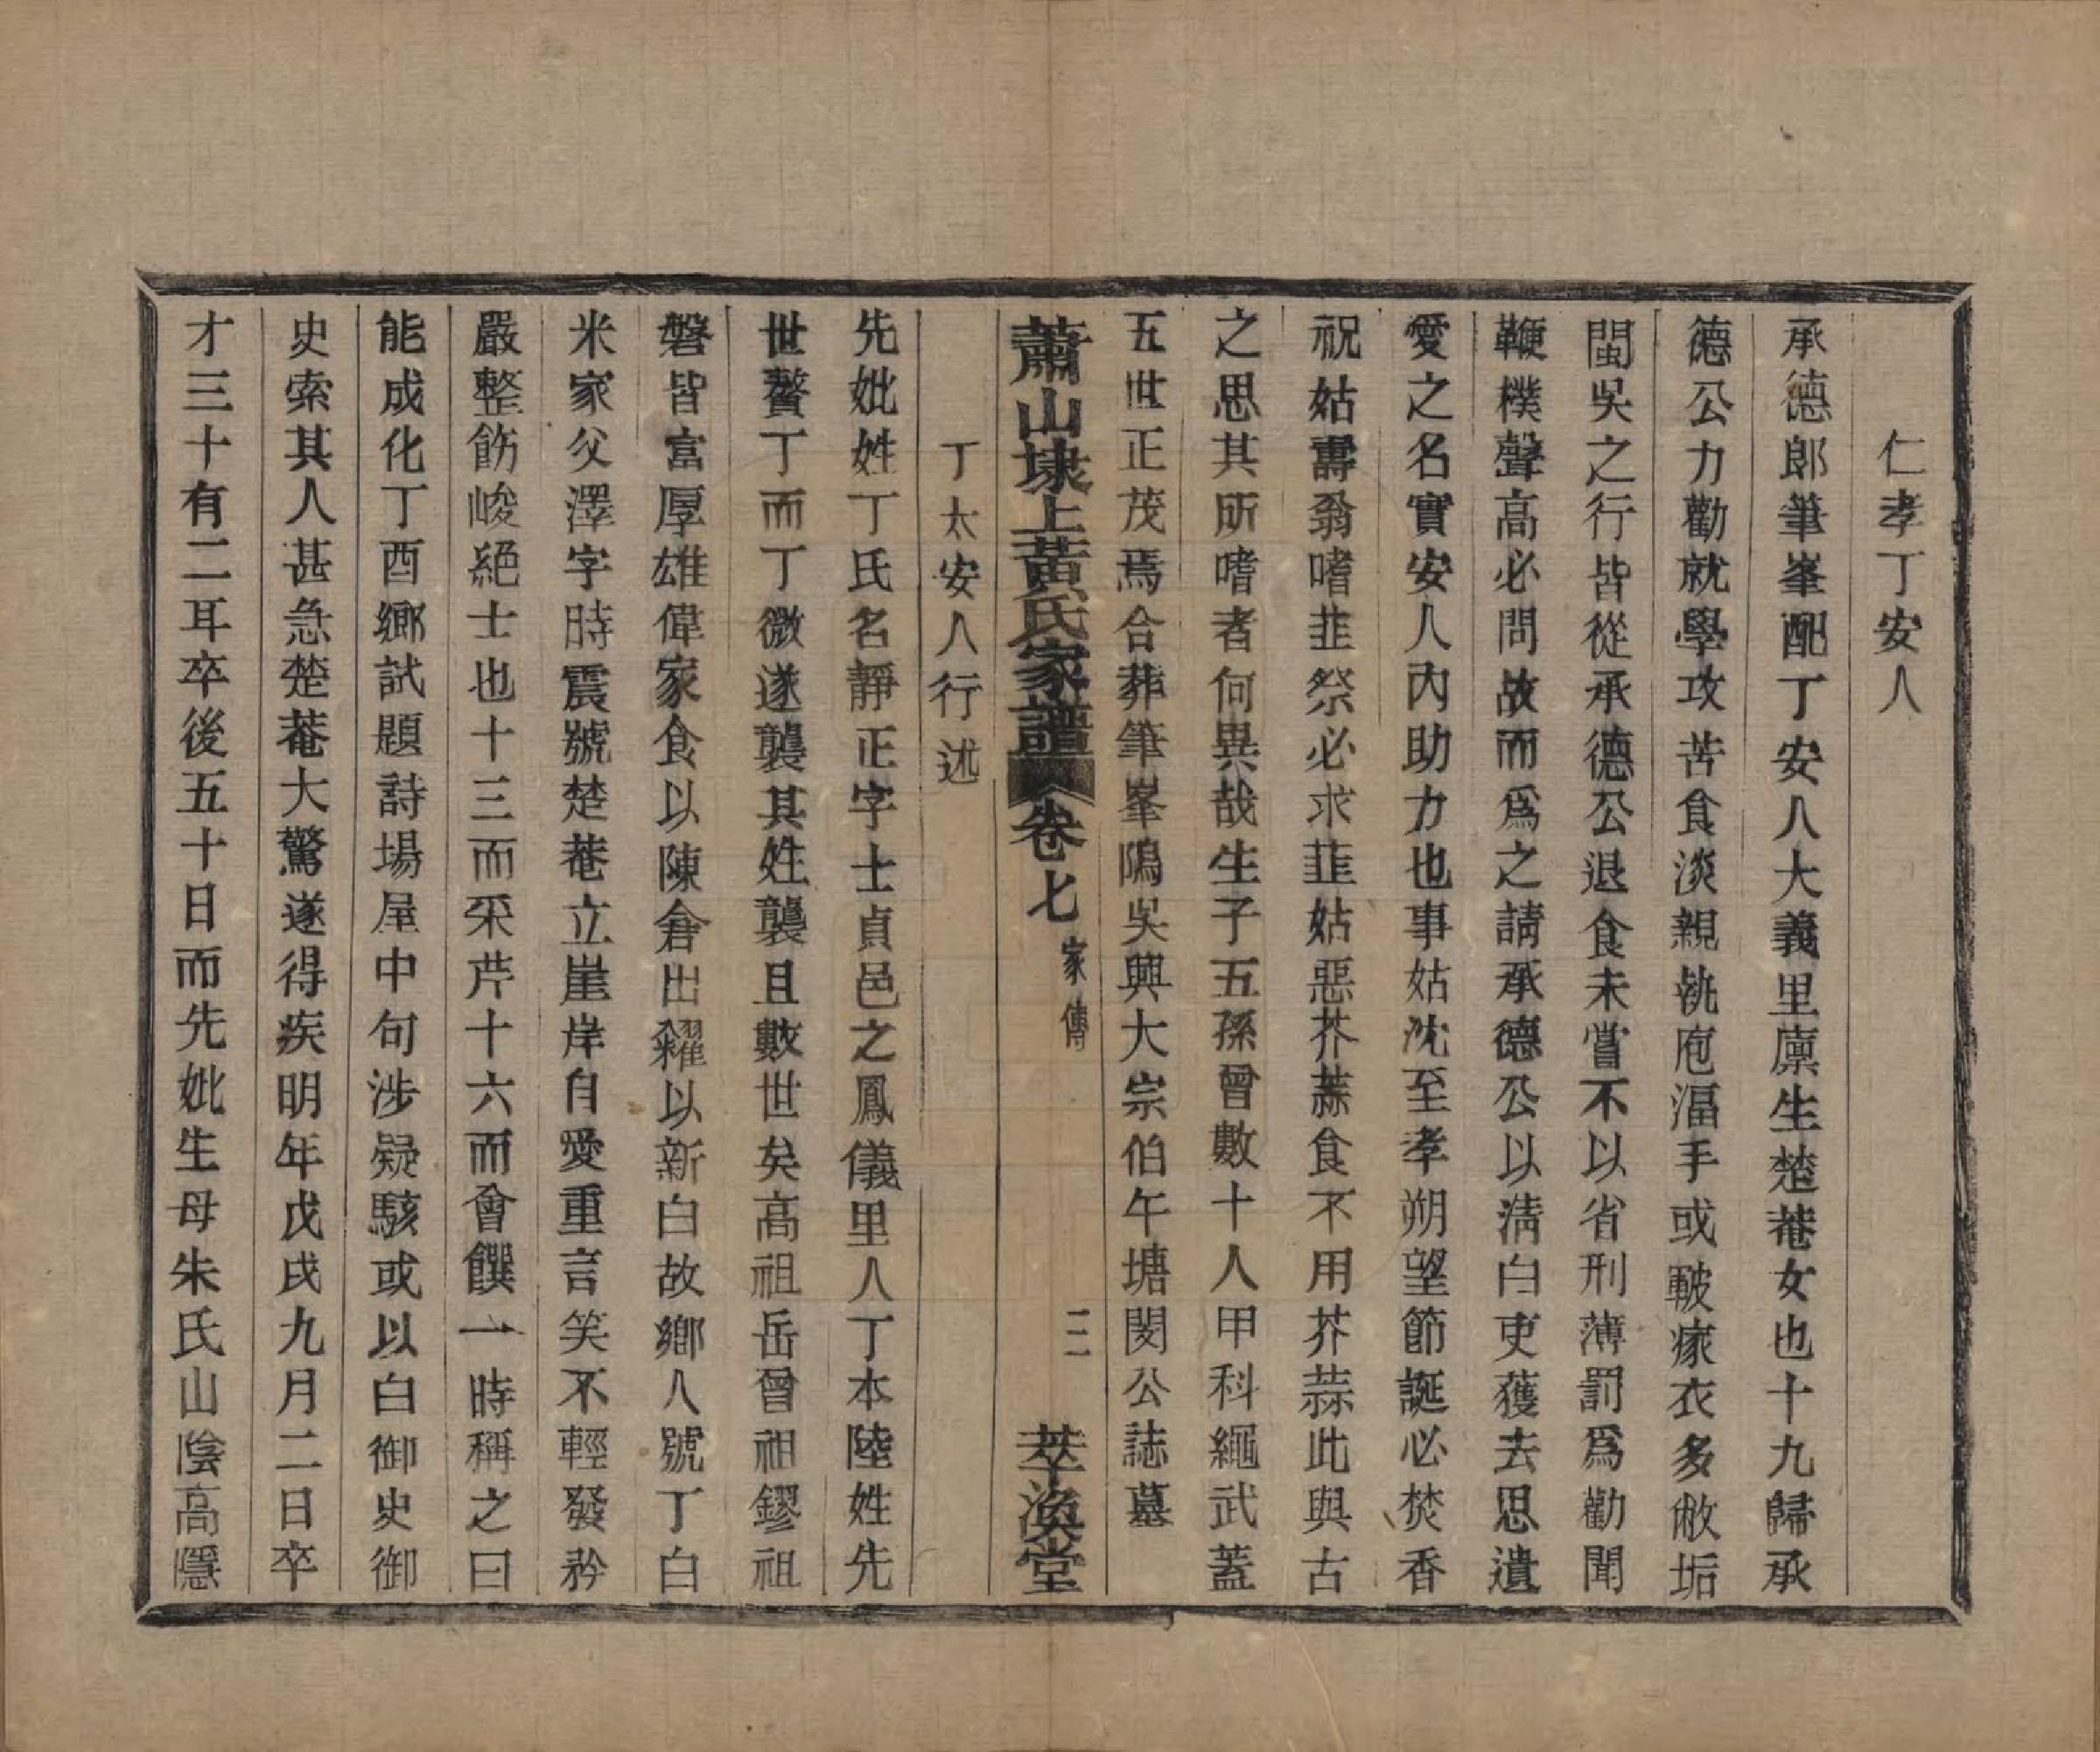 仁孝丁安人
承德郎筆峯配丁安人大義里廩生楚菴女也十九歸承
德公力勸就學攻苦食淡親執庖湢手或皸瘃衣多敝垢
閩吳之行皆從承德公退食未嘗不以省刑薄罰爲勸聞
鞭樸聲高必問故而爲之請承德公以清白吏獲去思遺
愛之名實安人內助力也事姑沈至孝朔望節誕必焚香
祝姑壽翁嗜韭祭必求韮姑惡芥蒜食不用芥蒜此與古
之思其所嗜者何異哉生子五孫曾數十人甲科繩武蓋
五世正茂焉合葬筆峯隝吳興大宗伯午塘閔公誌墓
蕭山埭上黃氏家譜 卷七 家傳 三 萃渙堂
丁太安人行述
先妣姓丁氏名靜正字士貞邑之鳳儀里人丁本陸姓先
世贅丁而丁微遂襲其姓襲且數世矣高祖岳曾祖鏐祖
磐皆富厚雄偉家食以陳倉出糶以新白故鄉人號丁白
米家父澤字時震號楚菴立崖岸自愛重言笑不輕發矜
嚴整飭峻絕士也十三而采芹十六而會饌一時稱之曰
能成化丁酉鄉試題詩場屋中句涉疑駭或以白御史御
史索其人甚急楚菴大驚遂得疾明年戊戌九月二日卒
才三十有二耳卒後五十日而先妣生母朱氏山陰高隱